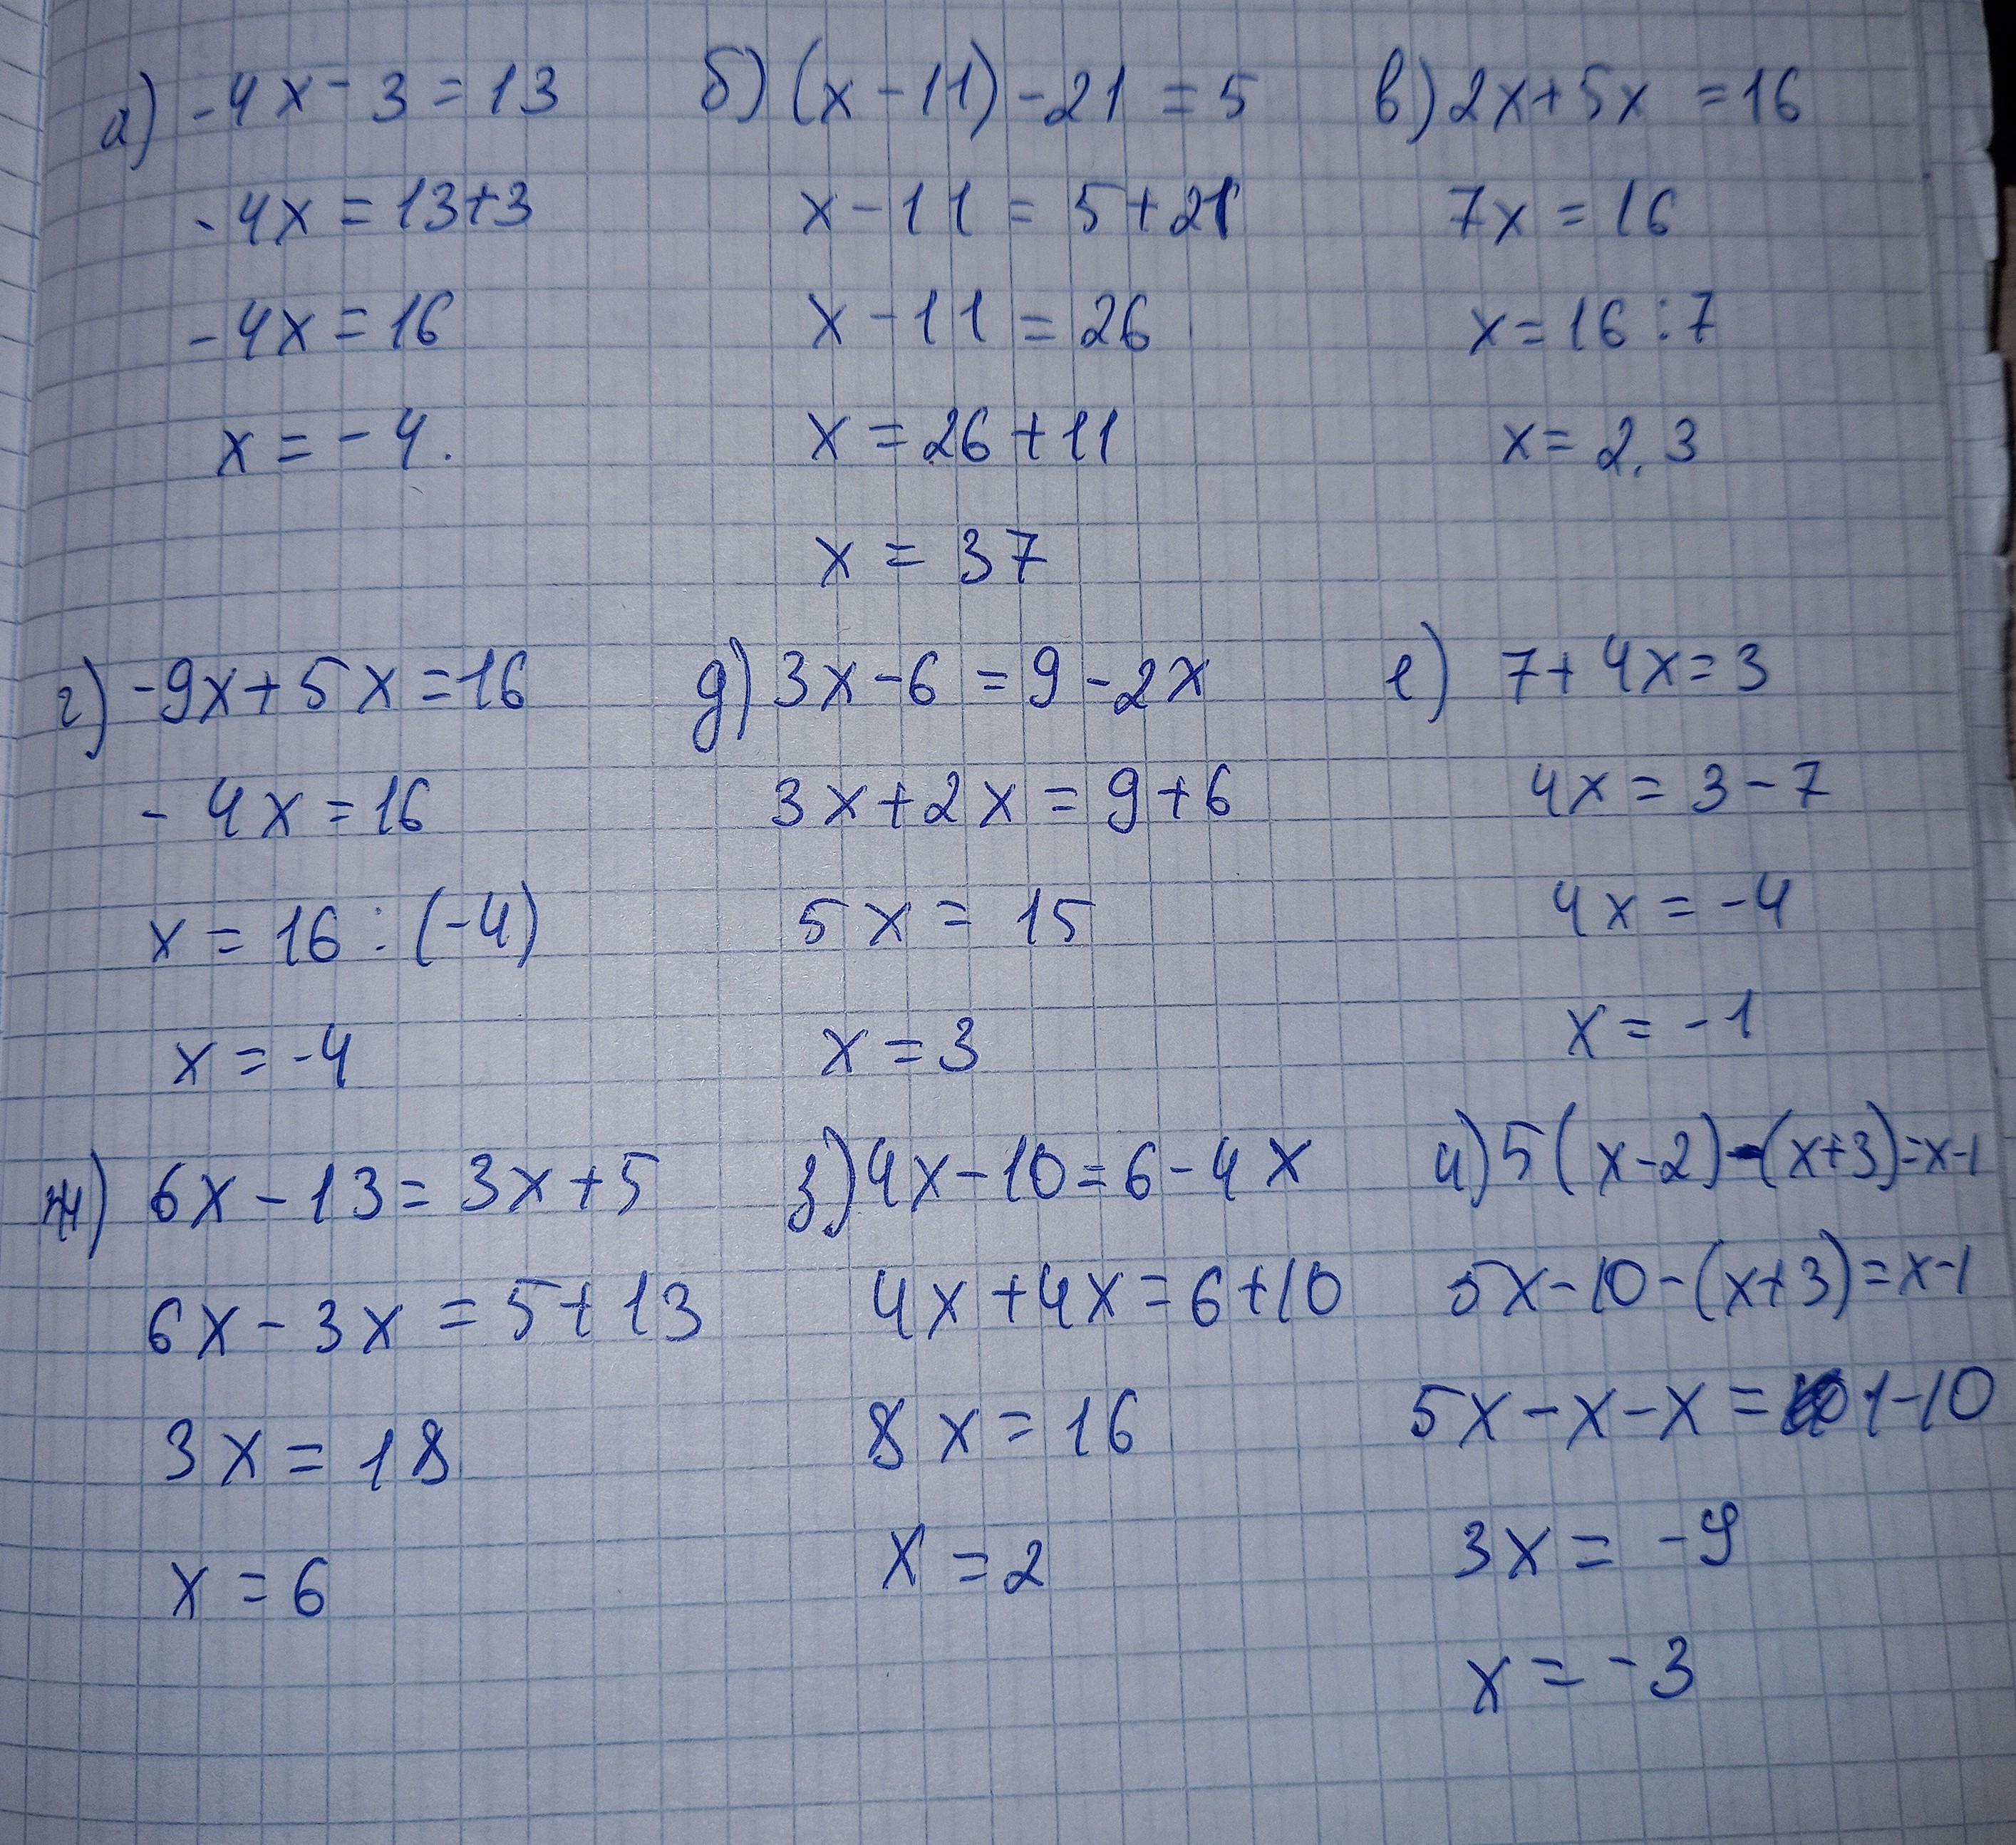 а) -4x - 3 = 13
-4x = 13+3
-4x = 16
x = -4.
б) (x - 11) - 21 = 5
x - 11 = 5 + 21
x - 11 = 26
x = 26 + 11
x = 37
в) 2x + 5x = 16
7x = 16
x = 16 : 7
x = 2,3
г) -9x + 5x = 16
-4x = 16
x = 16 : (-4)
x = -4
д) 3x - 6 = 9 - 2x
3x + 2x = 9 + 6
5x = 15
x = 3
е) 7 + 4x = 3
4x = 3 - 7
4x = -4
x = -1
ж) 6x - 13 = 3x + 5
6x - 3x = 5 + 13
3x = 18
x = 6
з) 4x - 10 = 6 - 4x
4x + 4x = 6 + 10
8x = 16
x = 2
и) 5(x - 2) - (x + 3) = x - 1
5x - 10 - (x + 3) = x - 1
5x - x - x = 1 - 10
3x = -9
x = -3